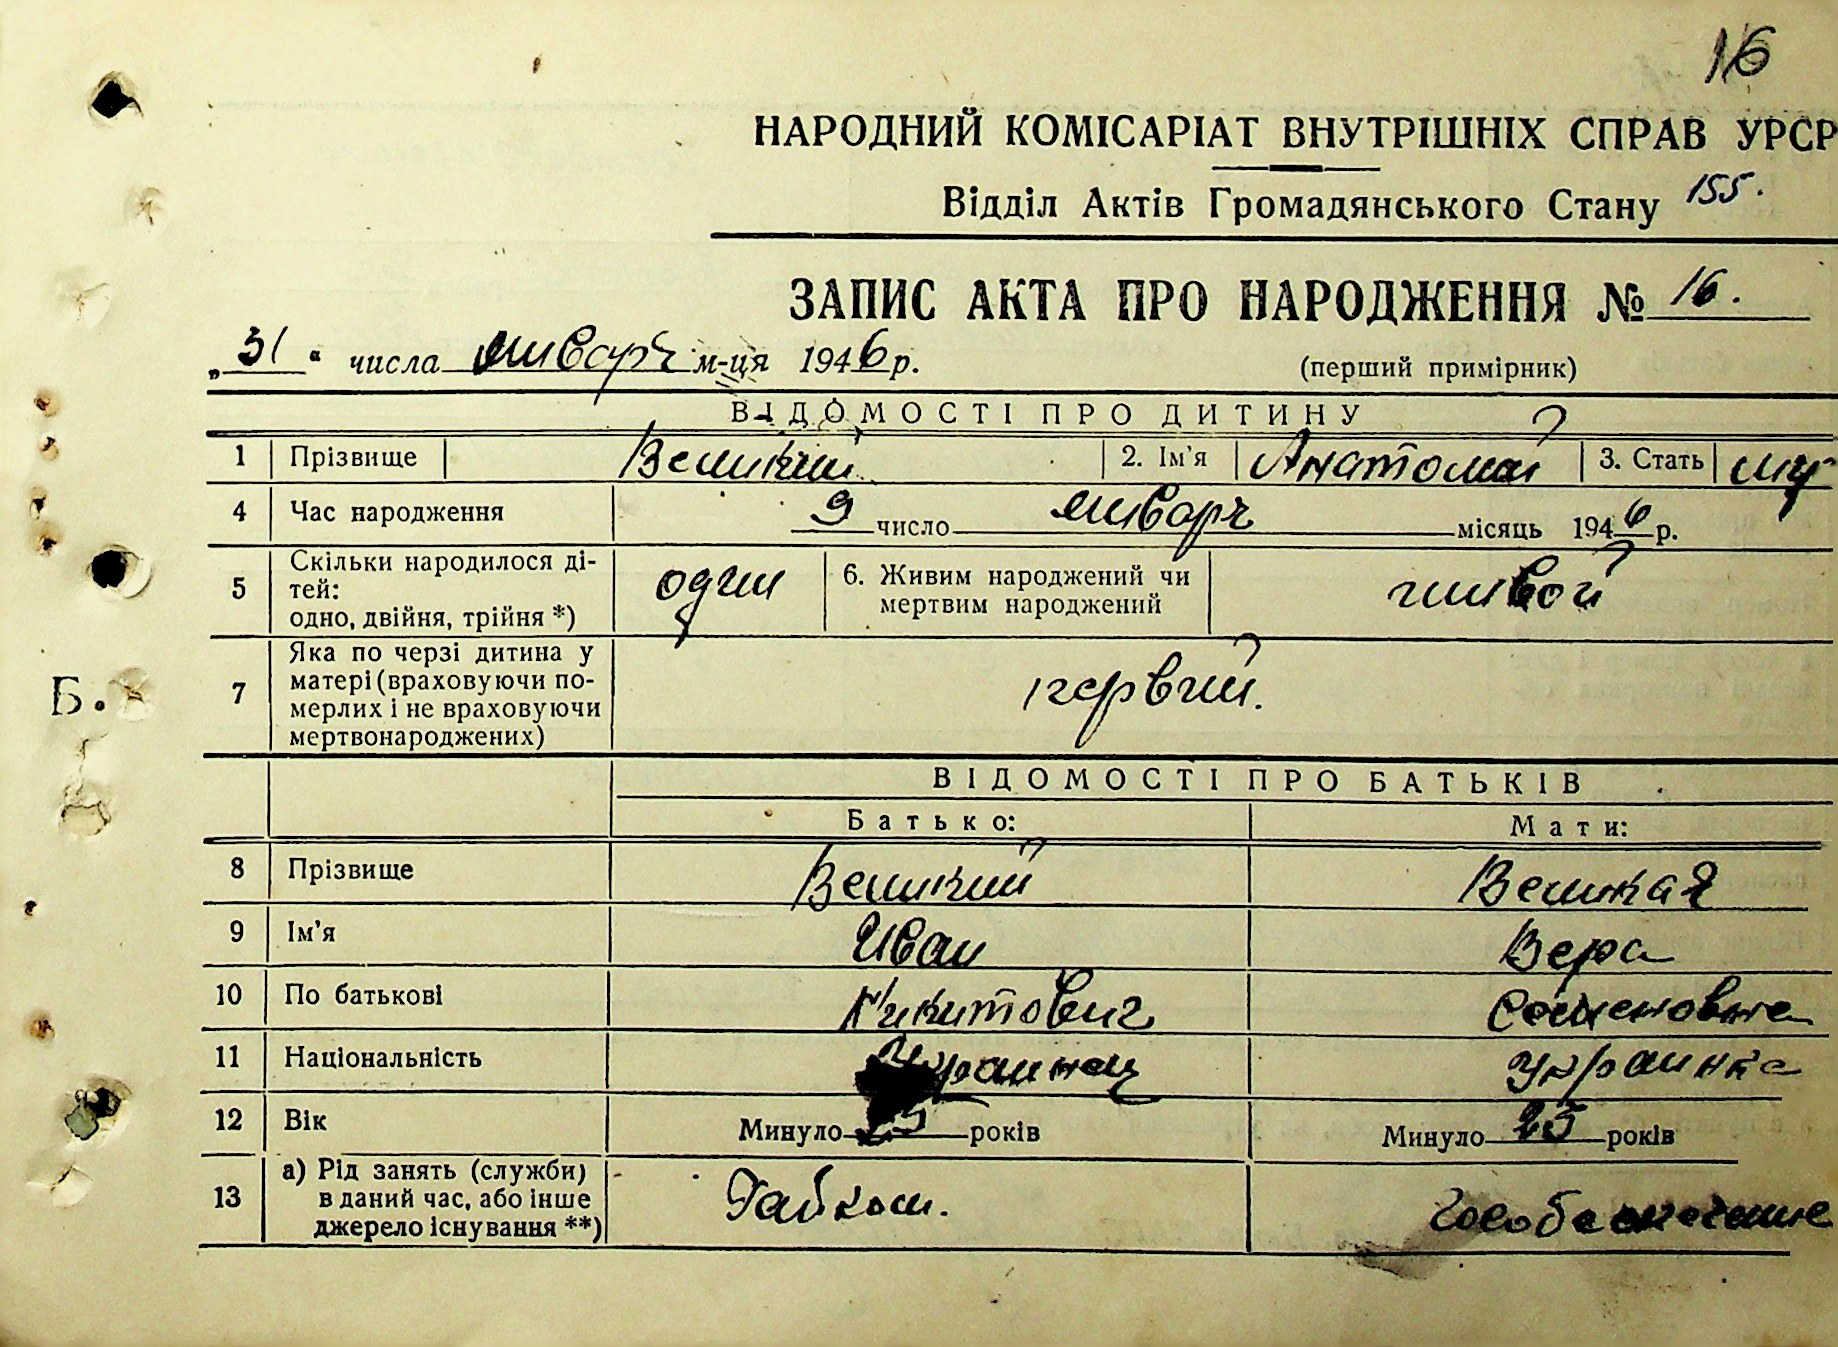 16
НАРОДНИЙ КОМІСАРІАТ ВНУТРІШНІХ СПРАВ УРСР
Відділ Актів Громадянського Стану 155.
ЗАПИС АКТА ПРО НАРОДЖЕННЯ № 16.
„31“ числа январь м-ця 1946 р. (перший примірник)
ВІДОМОСТІ ПРО ДИТИНУ
1 Прізвище Великий 2. Ім'я Анатолий 3. Стать муж
4 Час народження 9 число январь місяць 1946 р.
5 Скільки народилося ді-
тей:
одно, двійня, трійня *) один 6. Живим народжений чи
мертвим народжений живой
7 Яка по черзі дитина у
матері (враховуючи по-
мерлих і не враховуючи
мертвонароджених) первий.
Б.
ВІДОМОСТІ ПРО БАТЬКІВ
Батько: Мати:
8 Прізвище Великий Великая
9 Ім'я Иван Вера
10 По батькові Никитович Семеновна
11 Національність Украинец Украинка
12 Вік Минуло 25 років Минуло 25 років
13 а) Рід занять (служби)
в даний час, або інше
джерело існування **)